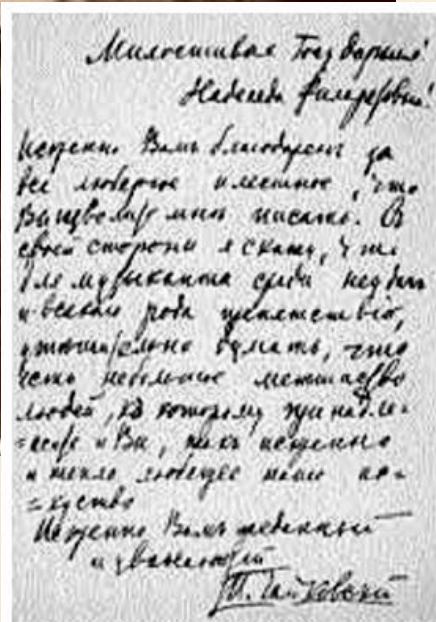 Милостивая Государыня!
Надежда Филаретовна!
Искренно Вамъ благодаренъ за
все любезное и лестное, что
Вы изволите мнѣ писать. Съ
своей стороны я скажу, что
для музыканта среди неудачъ
и всякаго рода препятствій,
утѣшительно думать, что
есть небольшое меньшинство
людей, къ которому принадле-
=жите и Вы, такъ искренно
и тепло любящее наше ис-
=куство
Искренно Вамъ преданный
и уважающій
П. Чайковский